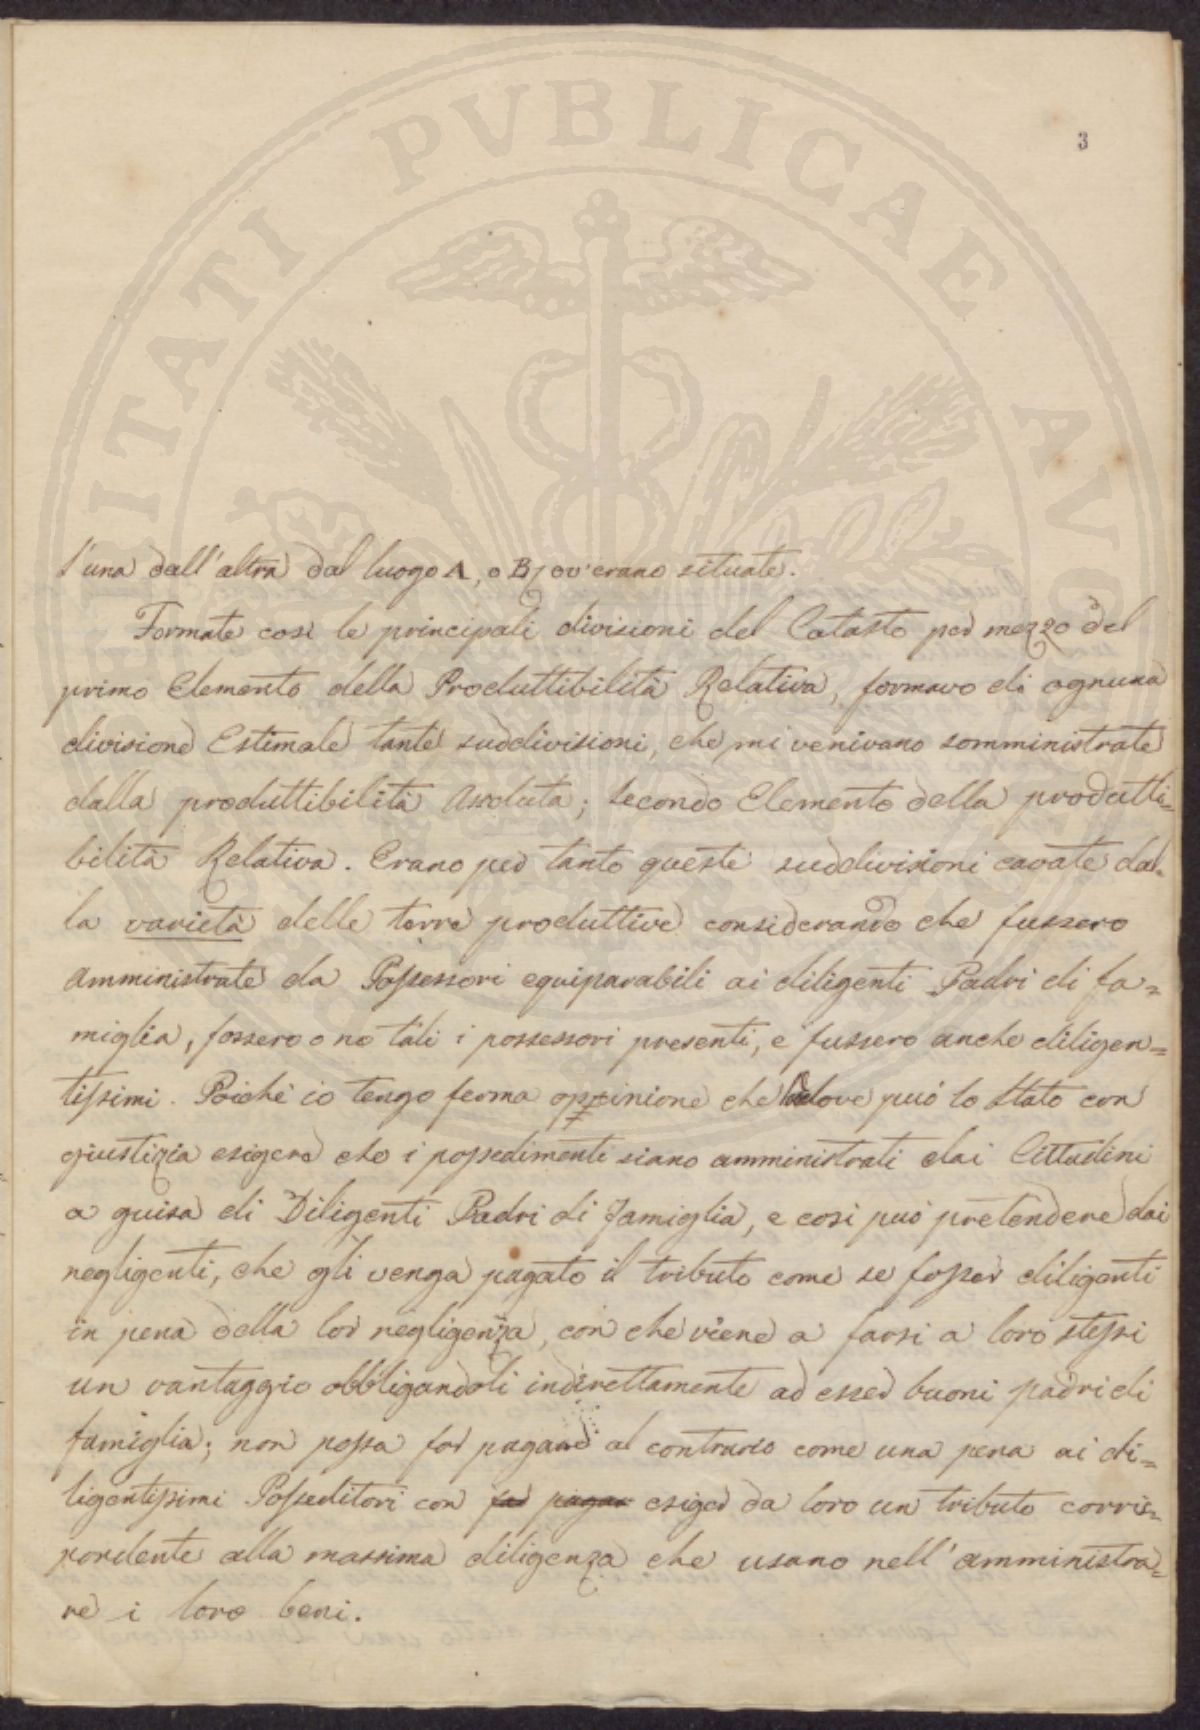 3
PROSPERITATI PUBLICAE AUG
l'una dall'altra dal luogo A, o B, ov'erano situate.
Formate così le principali divisioni del Catasto per mezzo del
primo Elemento della Produttibilità Relativa, formavo di ognuna
divisione Estimale tante suddivisioni, che mi venivano somministrate
dalla produttibilità Assoluta; secondo Elemento della produtti=
bilità Relativa. Erano per tanto queste suddivisioni cavate dal=
la varietà delle terre produttive considerando che fussero
amministrate da Possessori equiparabili ai diligenti Padri di fa=
miglia, fossero o no tali i possessori presenti, e fussero anche diligen=
tissimi. Poichè io tengo ferma oppinione che laddove può lo Stato con
giustizia esigere che i possedimenti siano amministrati dai Cittadini
a guisa di Diligenti Padri di famiglia, e così può pretendere dai
negligenti, che gli venga pagato il tributo come se fosser diligenti
in pena della lor negligenza, con che viene a farsi a loro stessi
un vantaggio obbligandoli indirettamente ad esser buoni padri di
famiglia; non possa far pagare al contrario come una pena ai di=
ligentissimi Posseditori con far pagar esiger da loro un tributo corris=
pondente alla massima diligenza che usano nell'amministra=
re i loro beni.